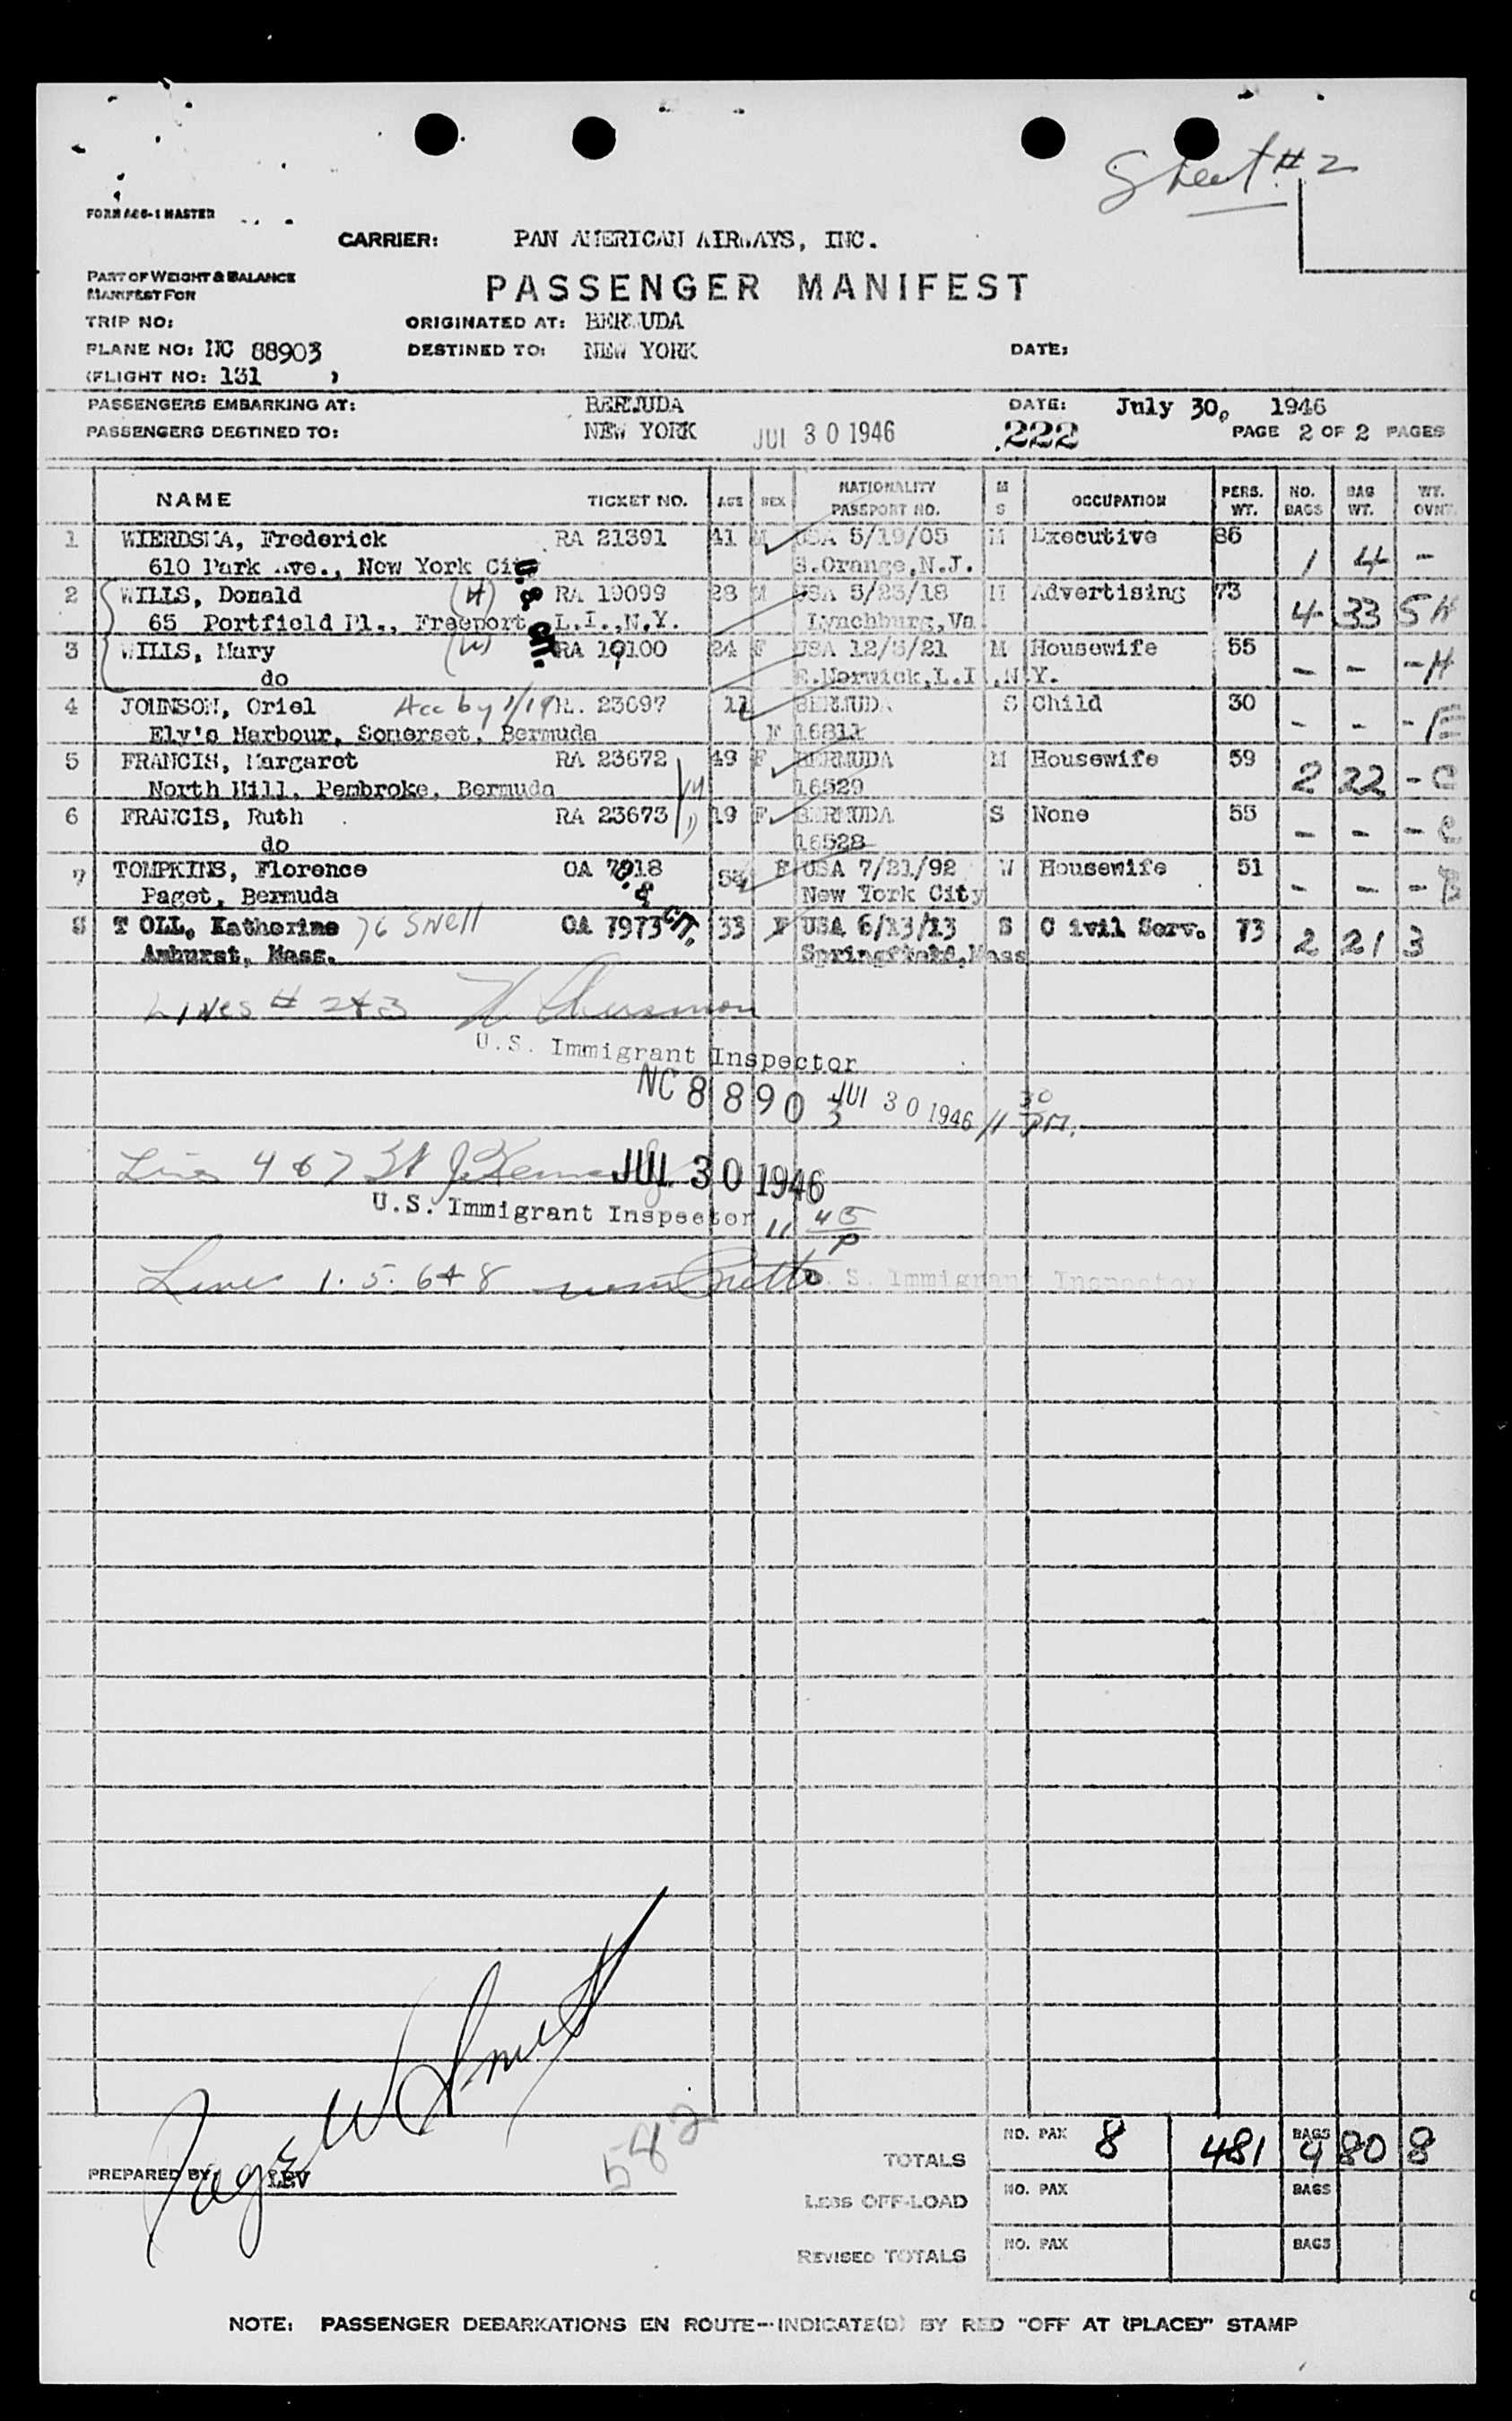 Sheet #2
FORM ACG-1 MASTER
CARRIER: PAN AMERICAN AIRWAYS, INC.
PART OF WEIGHT & BALANCE
MANIFEST FOR
PASSENGER MANIFEST
TRIP NO: ORIGINATED AT: BERMUDA
PLANE NO: NC 88903 DESTINED TO: NEW YORK DATE:
(FLIGHT NO: 131 )
PASSENGERS EMBARKING AT: BERMUDA DATE: July 30, 1946
PASSENGERS DESTINED TO: NEW YORK JUL 30 1946 222 PAGE 2 OF 2 PAGES
NAME TICKET NO. AGE SEX NATIONALITY PASSPORT NO. M S OCCUPATION PERS. WT. NO. BAGS BAG WT. WT. OVWT.
1 WIERDSMA, Frederick RA 21391 41 M USA 5/19/05 M Executive 86
610 Park Ave., New York City S.Orange,N.J. 1 4 -
2 WILLS, Donald (H) RA 19099 28 M USA 5/23/18 M Advertising 73
65 Portfield Pl., Freeport, L.I.,N.Y. Lynchburg,Va 4 33 5 H
U.S. CIT.
3 WILLS, Mary (W) RA 19100 24 F USA 12/5/21 M Housewife 55
do E.Norwick,L.I.,N.Y. - - - H
4 JOHNSON, Oriel Acc by 1/19 23697 11 BERMUDA S Child 30
Ely's Harbour, Somerset, Bermuda F 16811 - - - E
5 FRANCIS, Margaret RA 23672 49 F BERMUDA M Housewife 59
North Hill, Pembroke, Bermuda 16529 2 22 - C
6 FRANCIS, Ruth RA 23673 19 F BERMUDA S None 55
do 16528 - - - C
7 TOMPKINS, Florence OA 7918 54 F USA 7/21/92 W Housewife 51
Paget, Bermuda New York City - - -
U.S. CIT.
8 T OLL, Katherine 76 Snell OA 7973 33 F USA 6/13/13 S C ivil Serv. 73
Amhurst, Mass. Springfield,Mass 2 21 3
Lines # 2+3
U.S. Immigrant Inspector
NC 88903 JUL 30 1946 11 30 PM.
Lines 4 & 7 JUL 30 1946
U.S. Immigrant Inspector 11 45 P
Lines 1. 5. 6 + 8 U. S. Immigrant Inspector
582
PREPARED BY LBV
TOTALS NO. PAX 8 481 BAGS 9 80 8
LESS OFF-LOAD NO. PAX BAGS
REVISED TOTALS NO. PAX BAGS
NOTE: PASSENGER DEBARKATIONS EN ROUTE--INDICATE(D) BY RED "OFF AT (PLACE)" STAMP